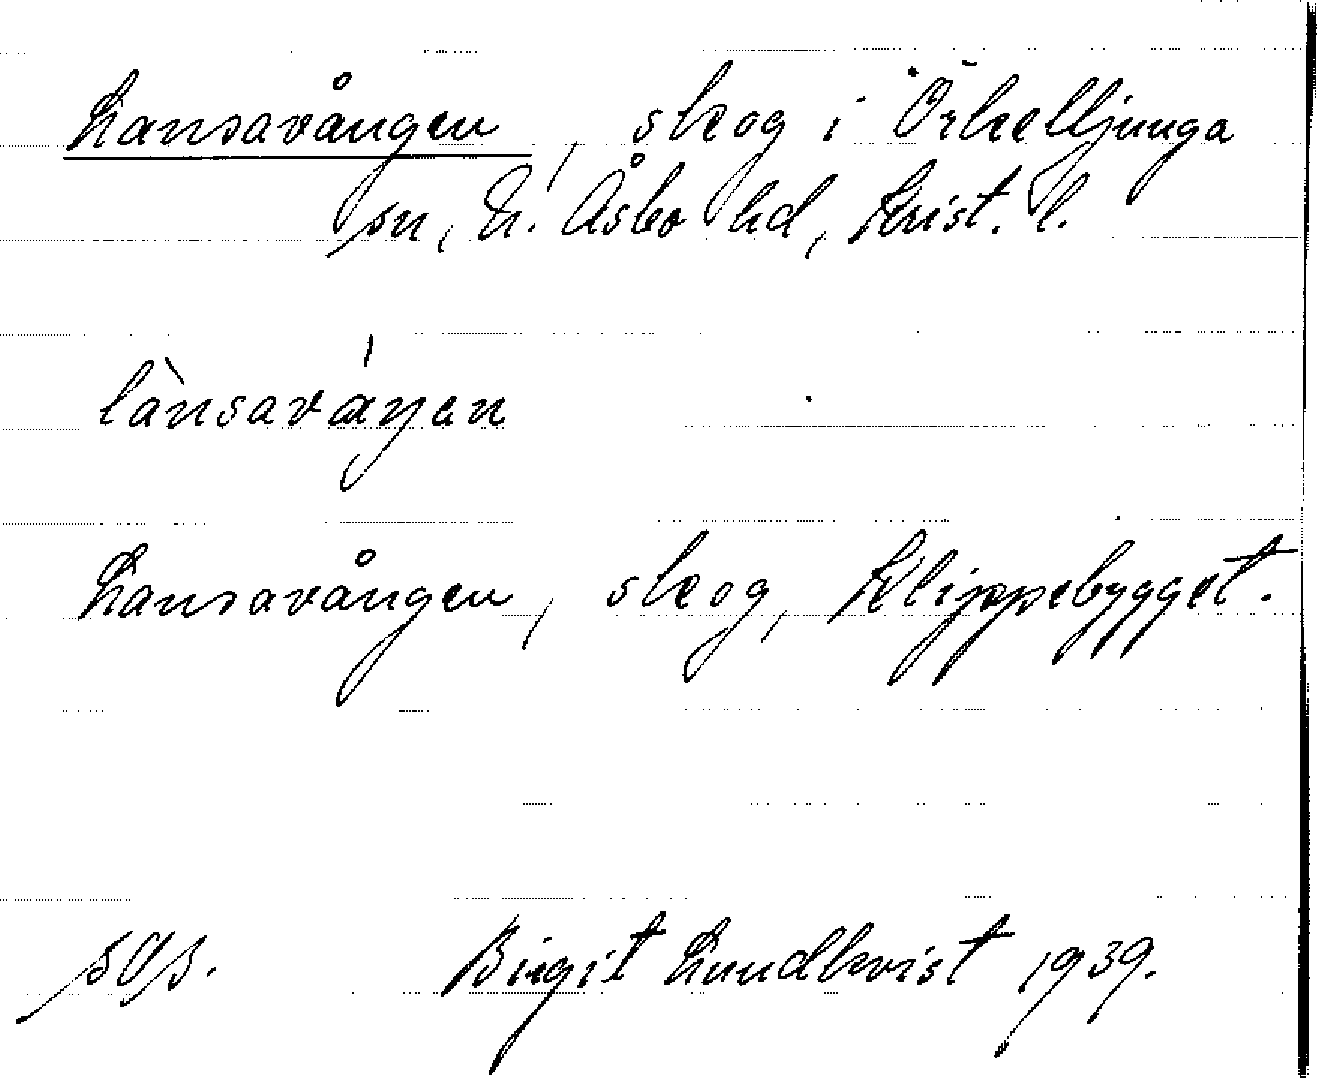 Lansavången, skog i Örkelljunga
sn, N. Åsbo hd, Krist. l.
lànsaváŋen
Lansavången, skog, Klippebygget.
sgs. Birgit Lundkvist 1939.